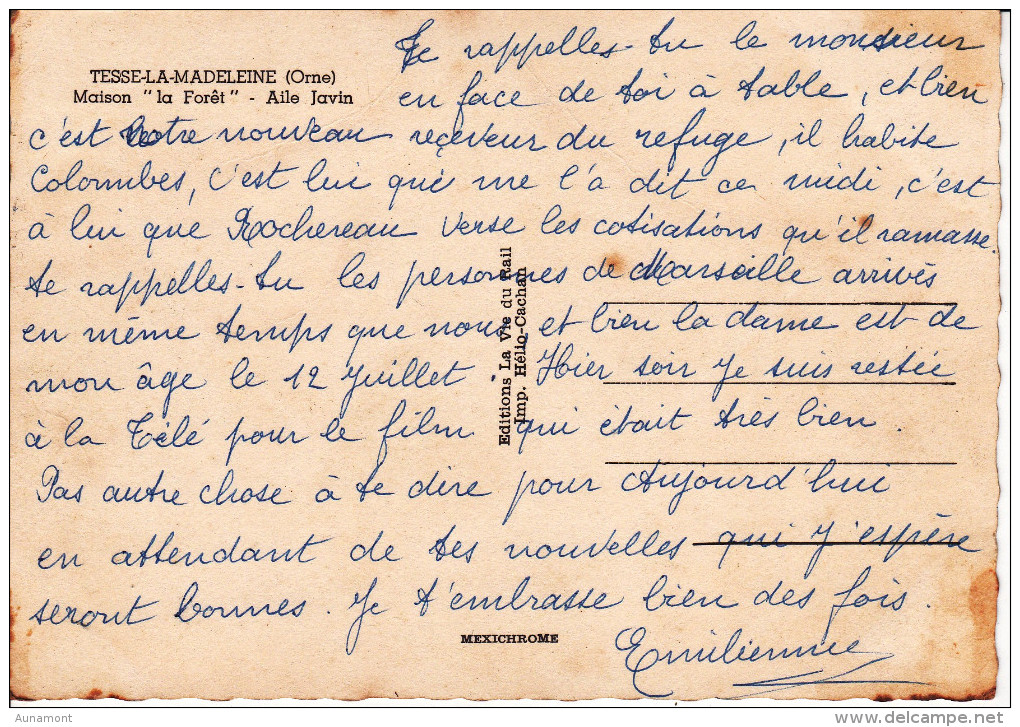 Te rappelles-tu le monsieur
TESSE-LA-MADELEINE (Orne)
Maison "la Forêt" - Aile Javin
en face de toi à table, et bien
c'est notre nouveau reçeveur du refuge, il habite
Colombes, c'est lui qui me l'a dit ce midi, c'est
à lui que Rochereau verse les cotisations qu'il ramasse.
te rappelles-tu les personnes de Marseille arrivés
en même temps que nous et bien la dame est de
mon âge le 12 Juillet. Hier soir Je suis restée
à la Télé pour le film qui était très bien.
Pas autre chose à te dire pour Aujourd'hui
en attendant de tes nouvelles qui J'espère
seront bonnes. Je t'embrasse bien des fois.
Emilienne
Editions La Vie du Rail
Imp. Hélio-Cachan
MEXICHROME
Aunamont
delcampe.net